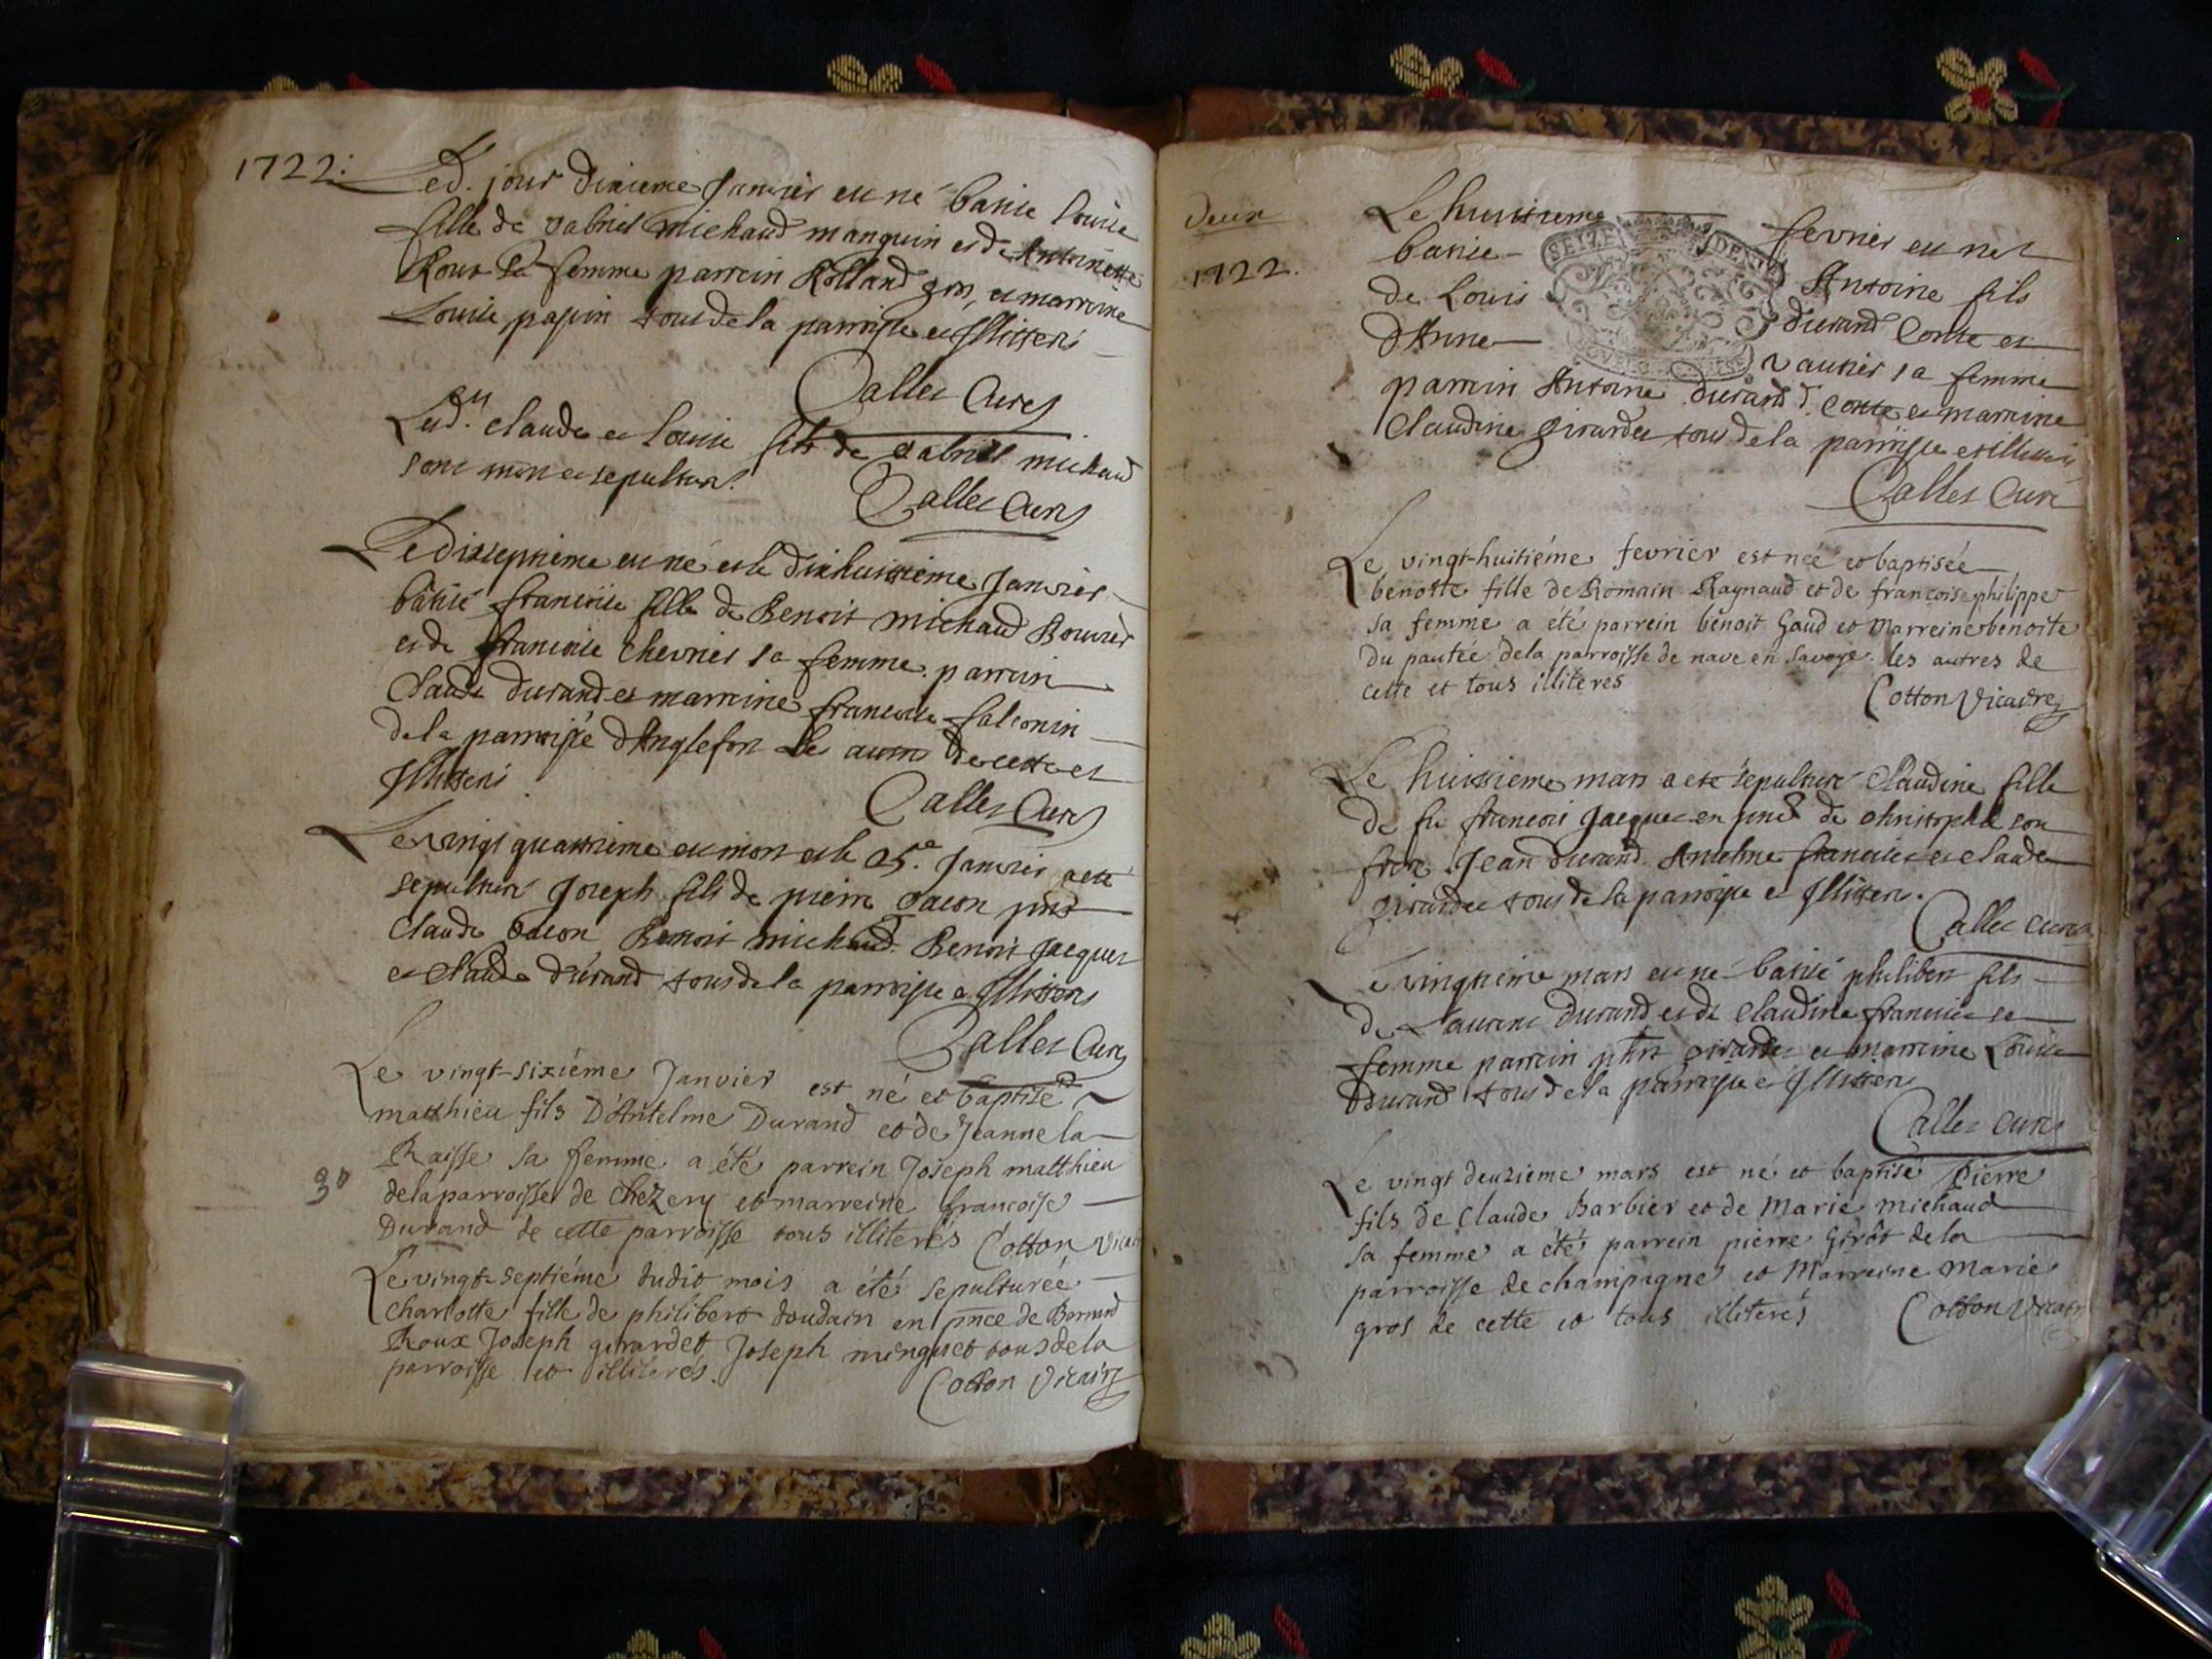 1722:
Led. jour dixieme Janvier est né batisé Louise
fille de Gabriel michaud manguin et de Antoinette
Roux sa femme parrein Rolland gros, et marreine
Louise papin tous de la parroisse et Illiterés
Callet Curé
Lesd. claude et louise fils de Gabriel michaud
sont mors et sepulturés
Callet Curé
Le dixseptieme est né et le dixhuittieme Janvier
batisé francoise fille de Benoit michaud Bouvier
et de francoise Chevrier sa femme parrein
Claude durand et marreine francoise falconin
de la parroisse d'Anglefort les autres de cette et
Illiterés
Callet Curé
Le vingt quattrieme est mort et le 25.e Janvier a eté
sepulturé Joseph fils de pierre Dacon pnts
Claude Dacon Benoit michaud Benoit Jacquet
et Claude durand tous de la parroisse et Illiterés
Callet Curé
Le vingt-sixiéme Janvier est né et baptisé
matthieu fils D'Antelme Durand et de Jeanne la
Raisse sa femme a été parrein Joseph matthieu
de la parroisse de Chezery et marreine francoise
Durand de cette parroisse tous illiterés Cotton Vicaire
Le vingt-septiéme dudit mois a été sepulturée
Charlotte fille de philibert doudain en pnce de Bernard
Roux Joseph girardet Joseph minguet tous de la
parroisse et illiterés.
Cotton Vicaire
deux
1722.
Le huittieme fevrier est né et
batisé Antoine fils
de Louis durand Conte et
d'Anne vautier sa femme
parrein Antoine durand d. Conte et marreine
Claudine girardet tous de la parroisse et Illiterés
Callet Curé
SEIZE DEN
Le vingt-huitiéme fevrier est née et baptisée
benoite fille de Romain Raynaud et de francoise philippe
sa femme a été parrein benoit Gaud et Marreine benoite
du pautée de la parroisse de nave en Savoye. les autres de
cette et tous illiteres
Cotton Vicaire
Le huittieme mars a eté sepulturé Claudine fille
de fu francois Jacquet en pnce de christophle son
frere Jean durand Antelme francillet et claude
girardet tous de la parroisse et Illiterés.
Callet curé
Le vingtieme mars est né batisé philibert fils
de Laurent durand et de Claudine francillet sa
femme parrein phrt girardet et marreine Louise
Durand tous de la parroisse et Illiterés
Callet curé
Le vingt deuzieme mars est né et baptisé Pierre
fils de Claude Barbier et de Marie michaud
sa femme a été parrein pierre Girôt de la
parroisse de champagne et Marreine Marie
gros de cette et tous illiterés Cotton Vicaire